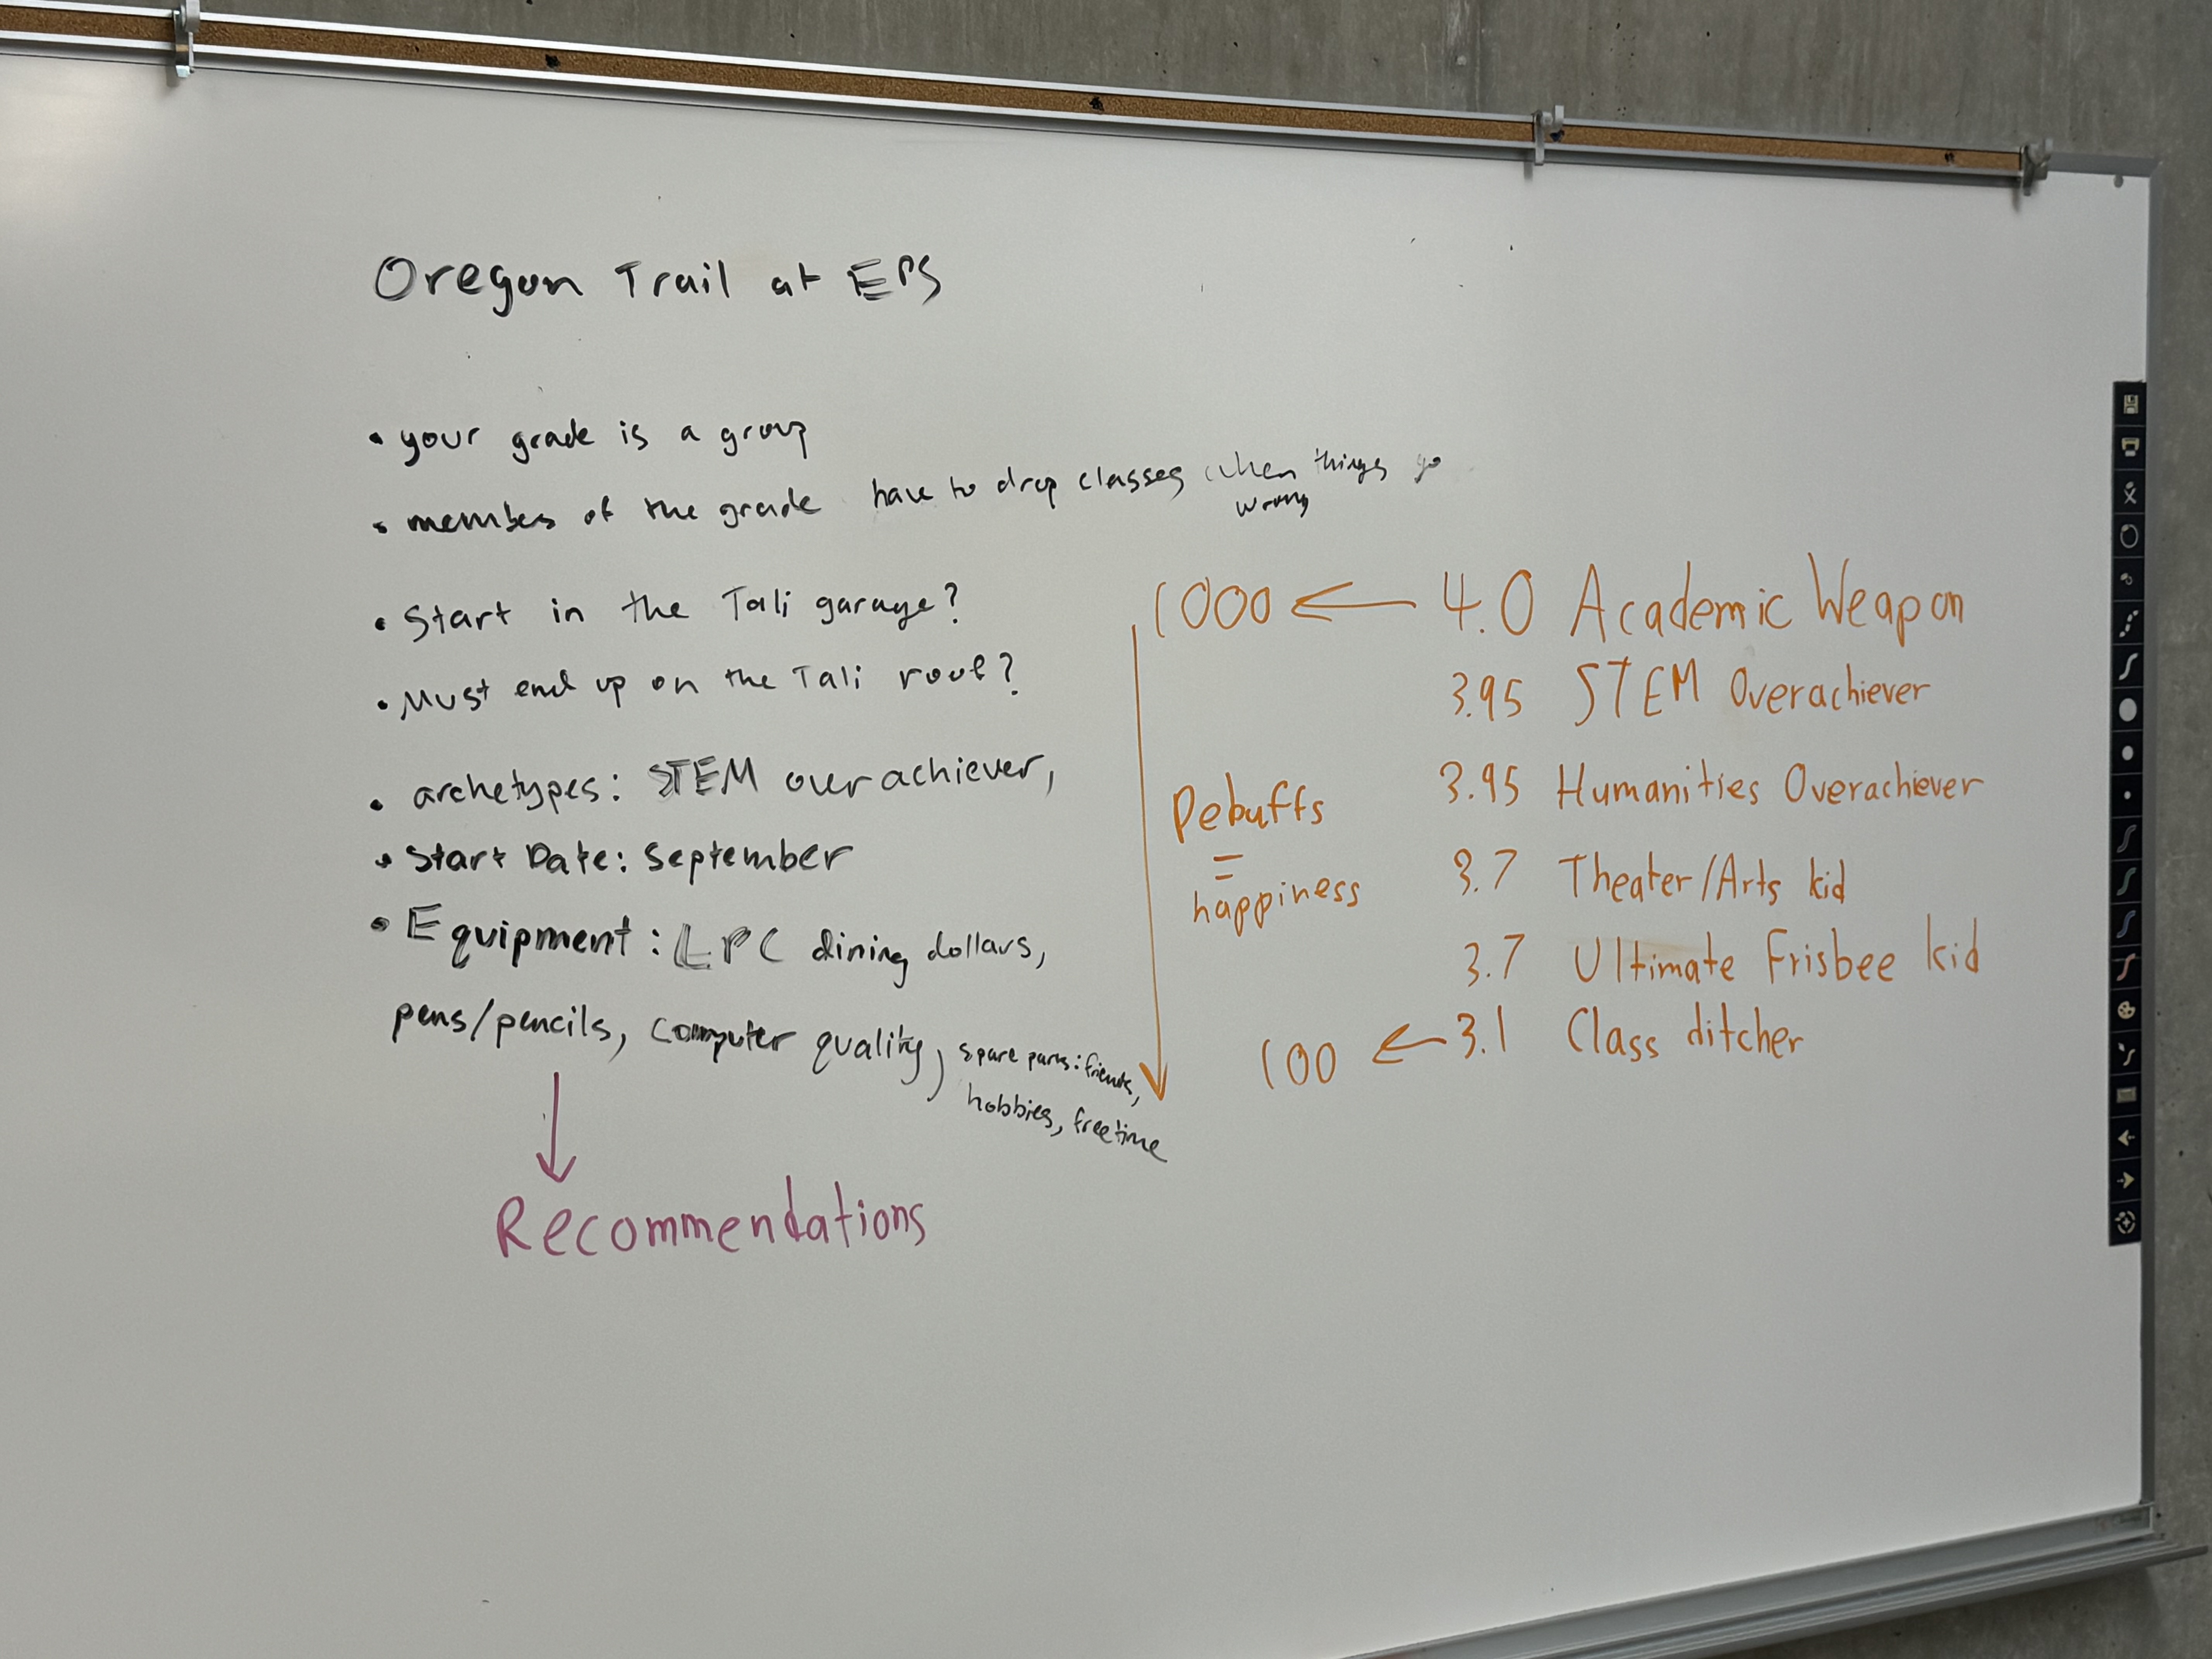 Oregon Trail at EPS
• your grade is a group
• members of the grade have to drop classes when things go
wrong
• Start in the Tali garage?
• Must end up on the Tali roof?
• archetypes: STEM overachiever,
• Start Date: September
• Equipment: LPC dining dollars,
pens/pencils, computer quality, spare parts: friends,
hobbies, free time
Recommendations
1000 ← 4.0 Academic Weapon
3.95 STEM Overachiever
3.95 Humanities Overachiever
3.7 Theater/Arts kid
3.7 Ultimate Frisbee kid
100 ← 3.1 Class ditcher
Debuffs
=
happiness